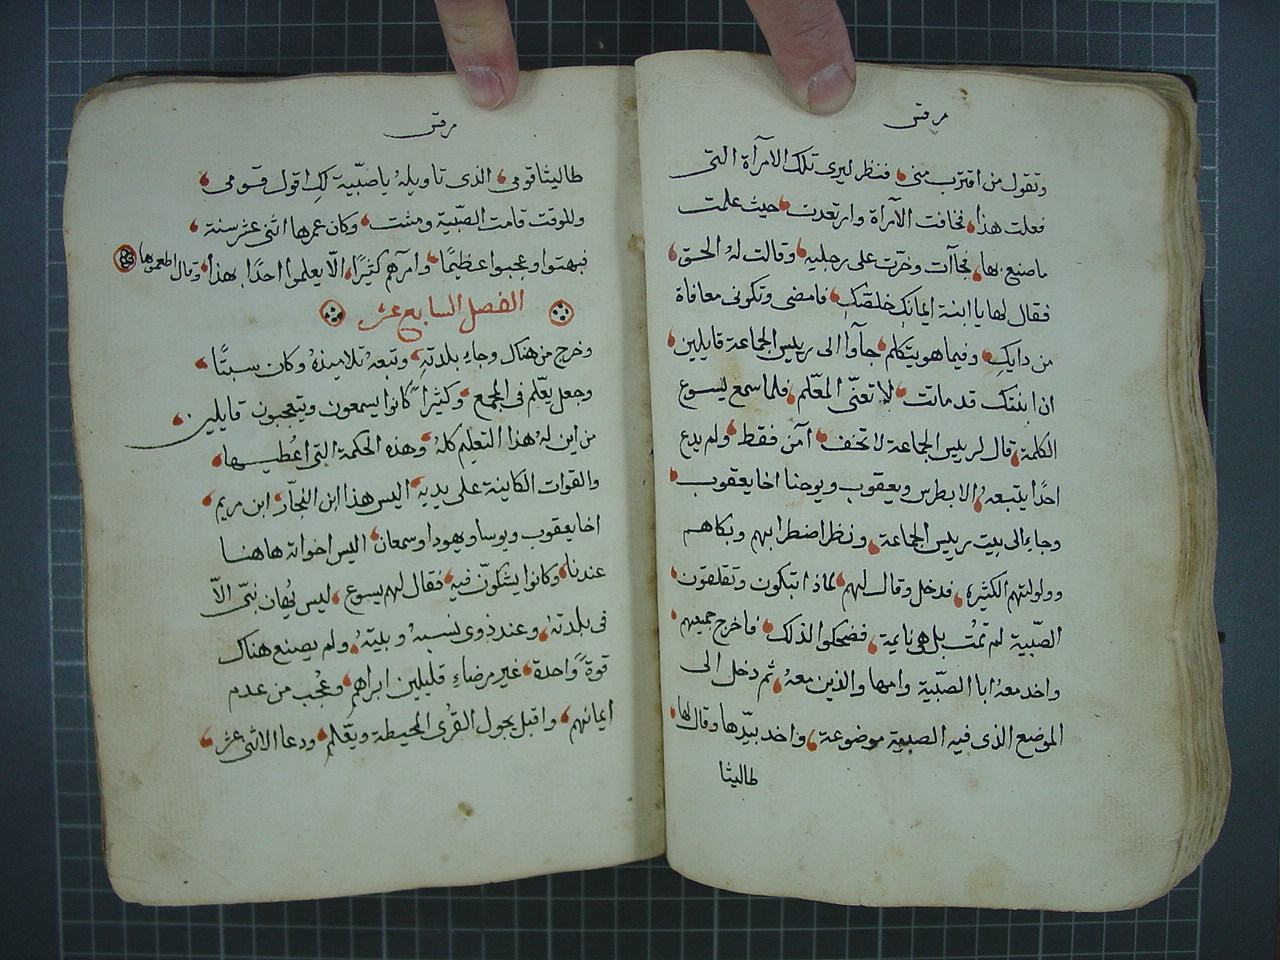 مرقس
وتقول من اقترب مني، فنظر ليرى تلك الامرأة التي
فعلت هذا، فخافت الامرأة وارتعدت، حيث علمت
ما صنع بها، فجآات وخرّت على رجليه، وقالت لهُ الحق،
فقال لها يا ابنة ايمانكِ خلصّكِ، فامضى وتكونى معافاة
من دايكِ، وفيما هو يتكلم، جآوا الى رييس الجماعة قايلين،
ان ابنتك قد ماتت، لا تعنّى المعّلم، فلما سمع ليسوع
الكلمة، قال لرييس الجماعة لا تخف، آمن فقط، ولم يدع
احدًا يتبعه، الا بطرس ويعقوب ويوحنا اخا يعقوب،
وجاء الى بيت رييس الجماعة، ونظر اضطرابهم وبكاهم
وولولتهم الكثيره، فدخل وقال لهم، لماذا تبكون وتقلقون،
الصّبية لم تمُت بل هى نايمة، فضحكوا لذلك، فاخرج جميعهم،
واخد معهُ ابا الصّبية وامها والذين معهُ، ثم دخل الى
الموضع الذى فيه الصبية موضوعة، واخد بيّدها وقال لها،
طاليثا
مرقس
طاليثا قومى، الذى تاويلهُ يا صبّية لكِ اقول قومى،
وللوقت قامت الصّبية ومشت، وكان عمرها اثنى عشر سنة،
فبهتوا وعجبوا عظيمًا، وآمرهم كثيرًا، الّا يعلموا احدًا بهذا، وقال اطعموها
الفصل السابع عشر
وخرج من هناك وجاء بلدتهِ، وتبعهُ تلاميذهُ وكان سبتًا،
وجعل يعّلم فى المجمع، وكثيرًا كانوا يسمعون ويتعجبون قايلين،
من اين لهُ هذا التعليم كلهُ، وهذه الحكمة التى اُعطيها،
والقوات الكاينة على يديهِ، اليس هذا ابن النجّار، ابن مريم،
اخا يعقوب ويوسا ويهودا وسمعان، اليس اخواته هاهنا
عندنا، وكانوا يشكوّن فيهِ، فقال لهم يسوع، ليس يُهان نبّى الّا
فى بلدتهُ، وعند ذوى نسبهُ وبيتهُ، ولم يصنع هناك
قوةً واحدة، غير مرضاءِ قليلين ابراهم، وعُجب من عدم
ايمانهم، واقبل يجول القرُى المحيطة ويعّلم، ودعا الاثنى عشر،